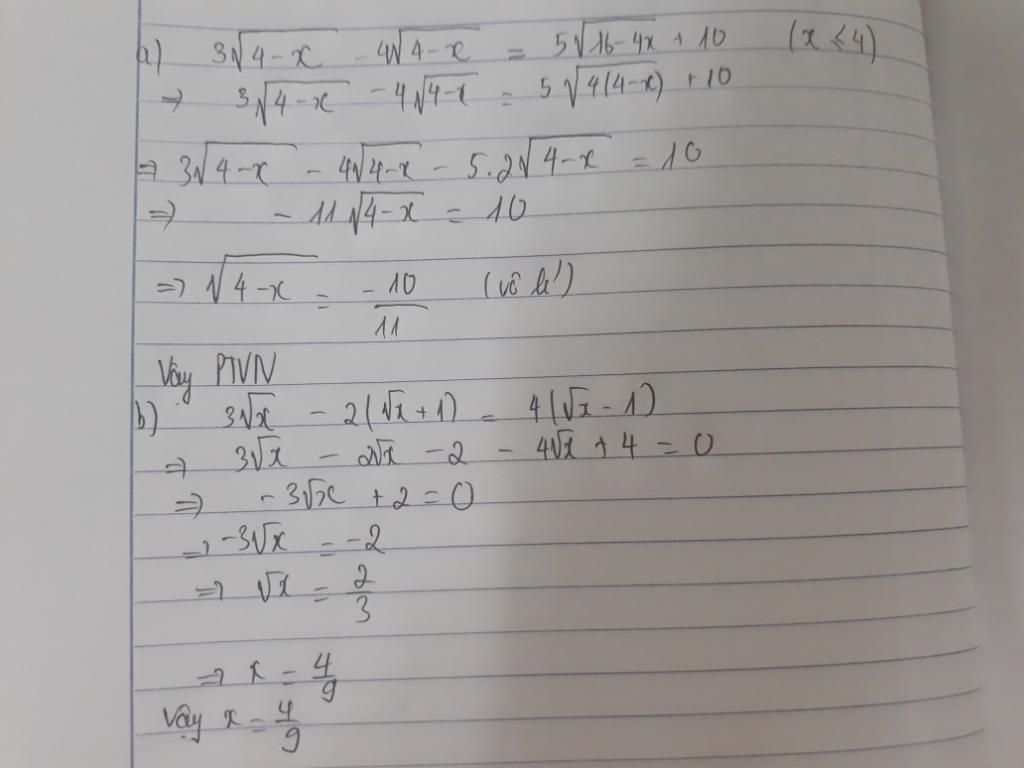 a) 3√(4-x) - 4√(4-x) = 5√(16-4x) + 10 (x ≤ 4)
⇒ 3√(4-x) - 4√(4-x) = 5√(4(4-x)) + 10
⇒ 3√(4-x) - 4√(4-x) - 5.2√(4-x) = 10
⇒ - 11√(4-x) = 10
⇒ √(4-x) = -10/11 (vô lí)
Vậy PTVN
b) 3√x - 2(√x + 1) = 4(√x - 1)
⇒ 3√x - 2√x - 2 - 4√x + 4 = 0
⇒ -3√x + 2 = 0
⇒ -3√x = -2
⇒ √x = 2/3
⇒ x = 4/9
Vậy x = 4/9